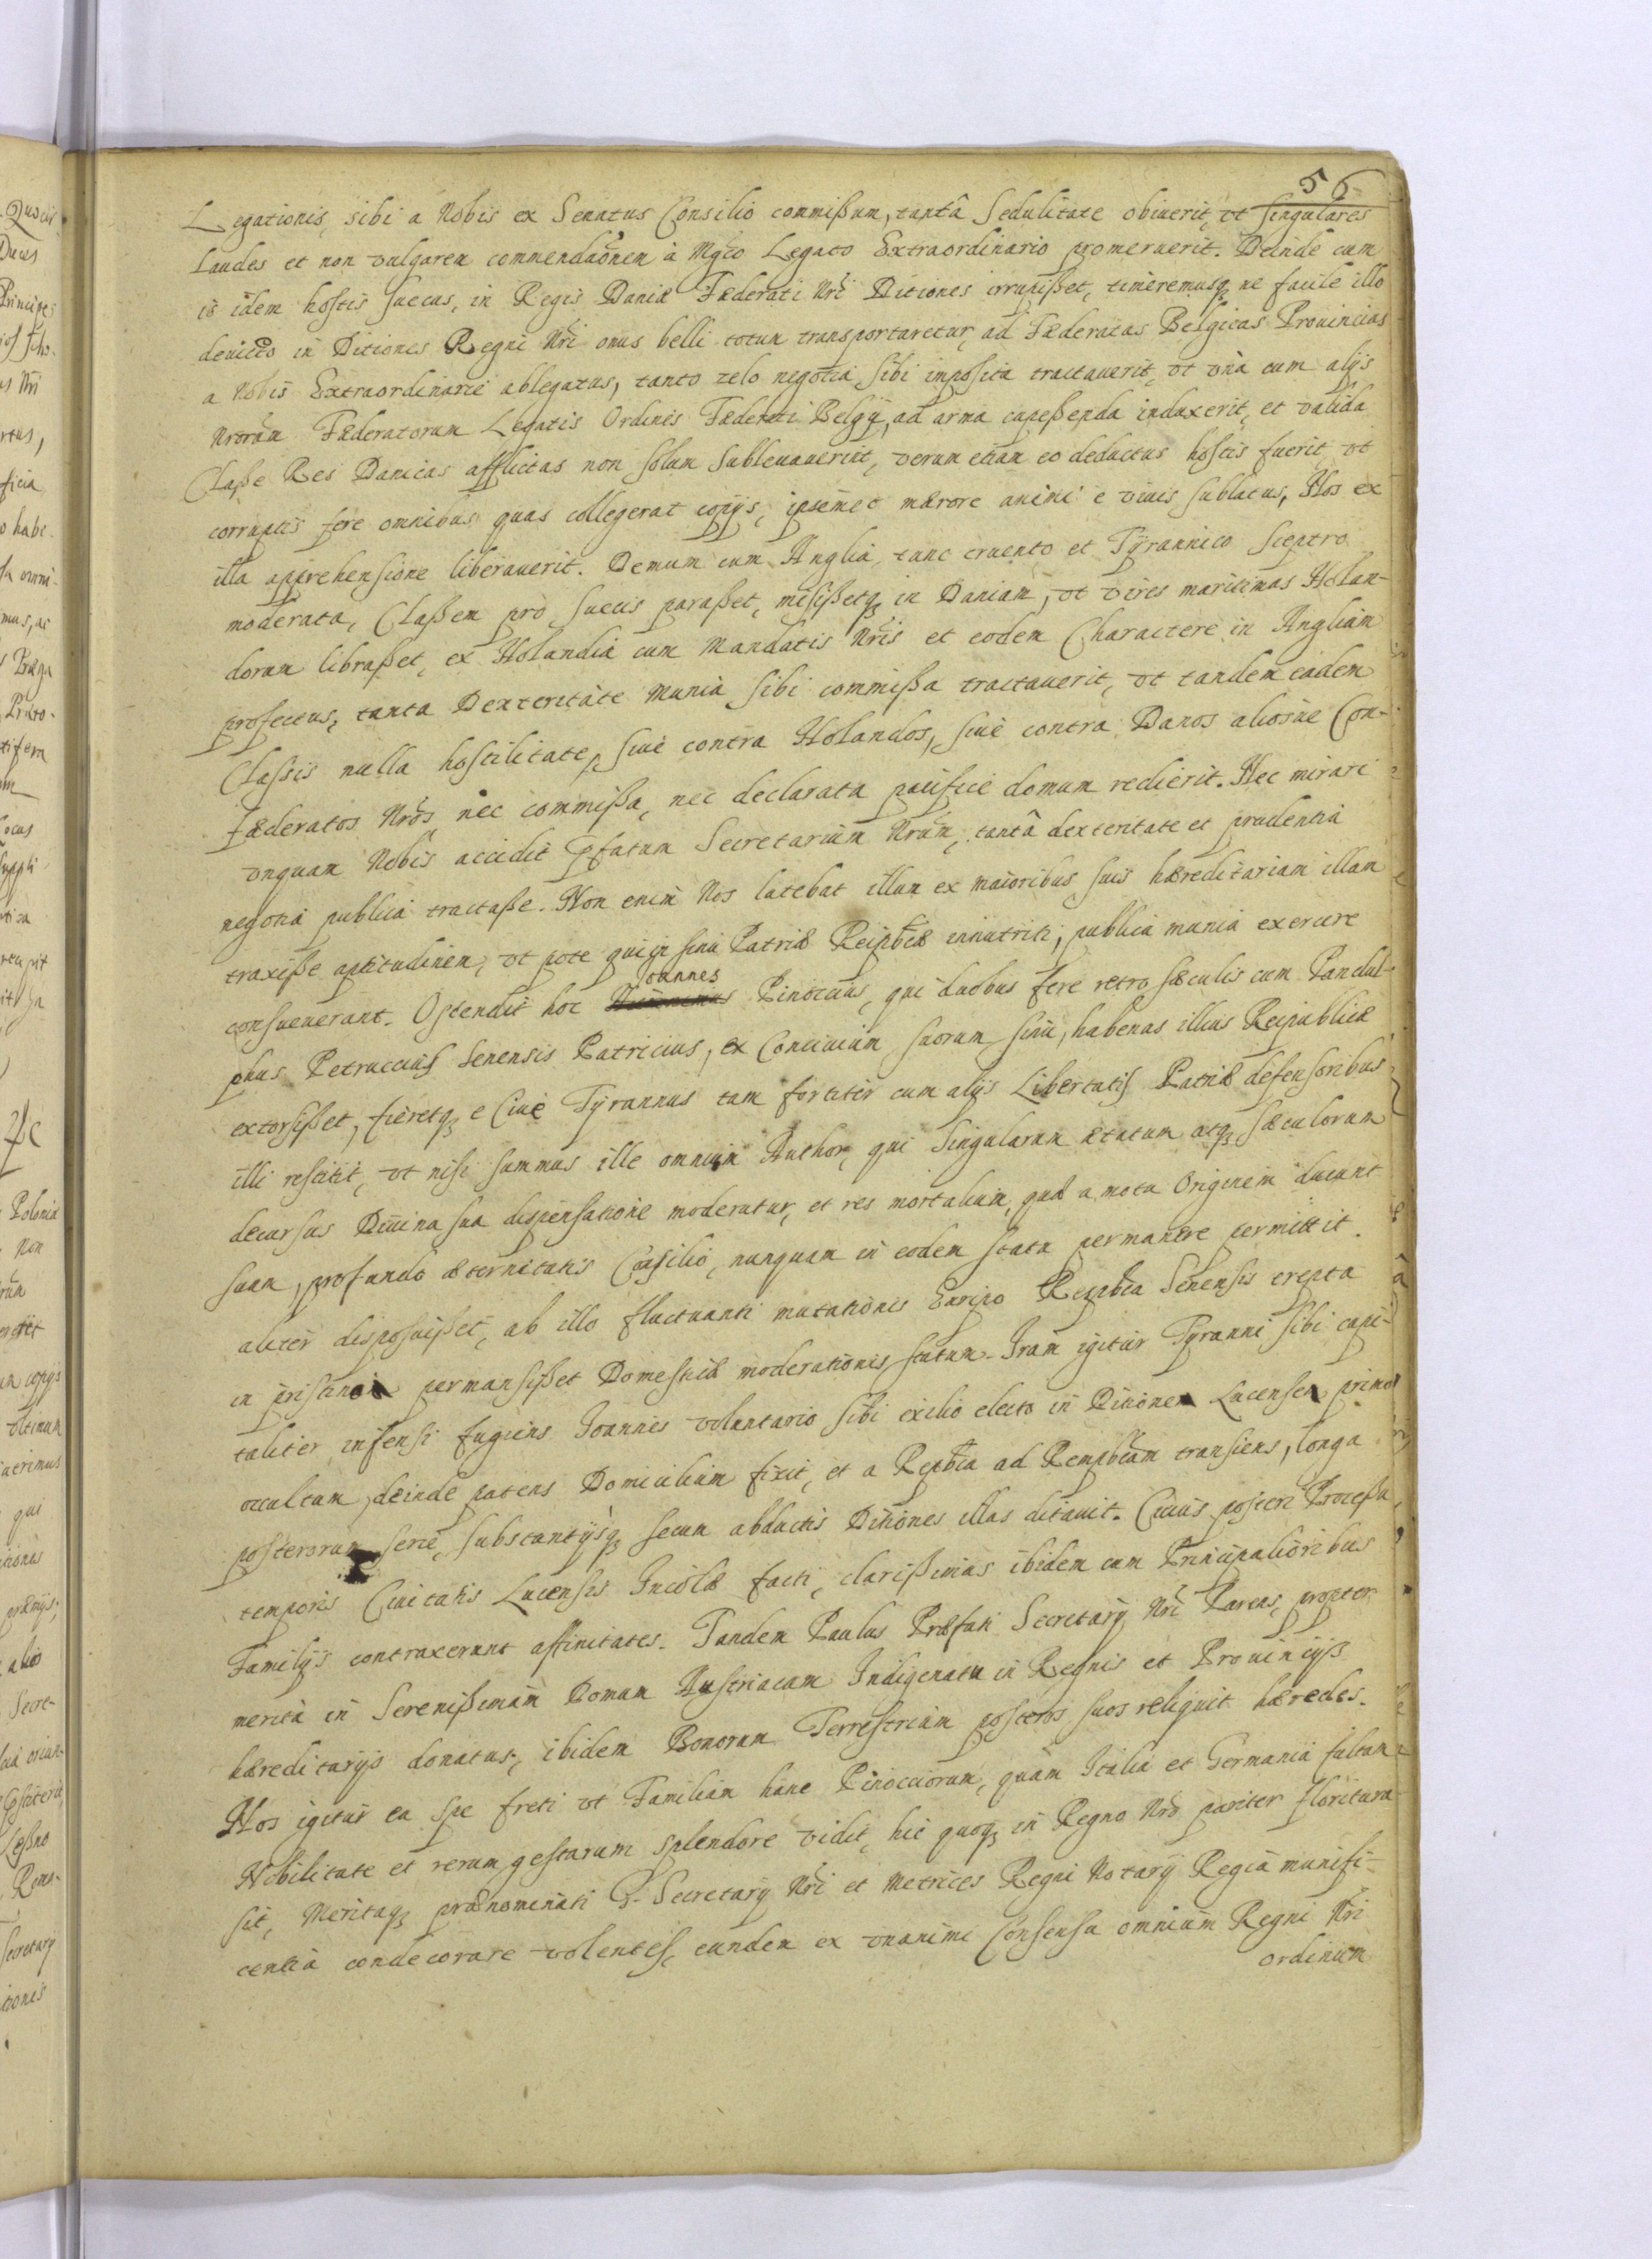 56
Legationis, sibi a Nobis ex Senatus Consilio commißum, tantâ Sedulitate obiuerit, vt singulares
Laudes et non vulgarem commendaõnem à Mgco Legato Extraordinario promeruerit. Deinde cum
is idem hostis suecus, in Regis Daniæ Fæderati Nri Ditiones irrupißet, timeremusq, ne facile illo
deuicto in Ditiones Regni Nri onus belli totum transportaretur, ad Fæderatas Belgicas Prouincias
a Nobis Extraordinarie ablegatus, tanto zelo negotia sibi imposita tractauerit, vt vnà cum alÿs
Nrorum Fæderatorum Legatis Ordines Fæderati Belgÿ, ad arma capeßenda induxerit, et valida
Claße Res Danicas afflictas non solum subleuauerint, verum etiam eo deductus hostis fuerit, vt
corruptis fere omnibus quas collegerat copÿs, ipsemet mærore animi e viuis sublatus, Nos ex
illa apprehensione liberauerit. Demum cum Anglia, tunc cruento et Tÿrannico sceptro
moderata, Claßem pro suecis paraßet, misißetq, in Daniam, vt vires maritimas Holan-
dorum libraßet, ex Holandia cum Mandatis Nris et eodem Charactere in Angliam
profectus, tanta Dexteritate munia sibi commißa tractauerit, vt tandem eadem
Classis nulla hostilitate, siue contra Holandos, siue contra Danos aliosue Con-
fæderatos Nros nec commißa, nec declarata pacifice domum redierit. Nec mirari
vnquam Nobis accidit Pfatum Secretarium Nrum, tantâ dexteritate et prudentia
negotia publica tractaße. Non enim Nos latebat illum ex maioribus suis hæreditariam illam
traxiße aptitudinem, vt pote qui in sinu Patriæ Reipbcæ innutriti, publica munia exercere
oannes
consueuerant. Ostendit hoc Pinoccius, qui duobus fere retro sæculis cum Pandul-
phus Petruccius Senensis Patricius, ex Conciuium suorum sinu, habenas illius Reipublicæ
extorsißet, fieretq, e Ciue Tÿrannus tam fortiter cum alÿs Libertatis Patriæ defensoribus
illi restitit, vt nisi summus ille omnium Author, qui singularum ætatum atq, sæculorum
decursus Diuina sua dispensatione moderatur, et res mortalium, quæ a motu Originem ducunt
suam, profundo æternitatis Consilio, nunquam in eodem statu permanere permittit.
aliter disposuißet, ab illo fluctuanti mutationis Euripo Respbca Senensis erepta
in pristino permansißet Domesticæ moderationis statum. Iram igitur Tÿranni sibi capi-
taliter infensi fugiens Joannes voluntario sibi exilio electo in Ditionem Lucensem primo
occultum, deinde patens Domicilium fixit, et a Repbca ad Rempbcam transiens, longa
posterorum serie, substantÿsq, secum abductis Ditiones illas ditauit. Cuius posteri Proceßu
temporis Ciuitatis Lucensis Incolæ facti, clarißimas ibidem cum Principalioribus
Familÿs contraxerunt affinitates. Tandem Paulus Præfati Secretarÿ Nri Parens, propter
merita in Serenißimam Domum Austriacam Indigenatu in Regnis et Prouincÿs
hæreditarÿs donatus, ibidem Bonorum Terrestrium posteros suos reliquit hæredes.
Nos igitur ea spe freti vt Familiam hanc Pinocciorum, quam Italia et Germania fultam
Nobilitate et rerum gestarum splendore vidit, hic quoq, in Regno Nro pariter floritura
sit, Meritaq, prænominati G. Secretarÿ Nri et Metrices Regni Notarÿ Regia munifi-
centia condecorare volentes, eundem ex vnanimi Consensu omnium Regni Nri
ordinum